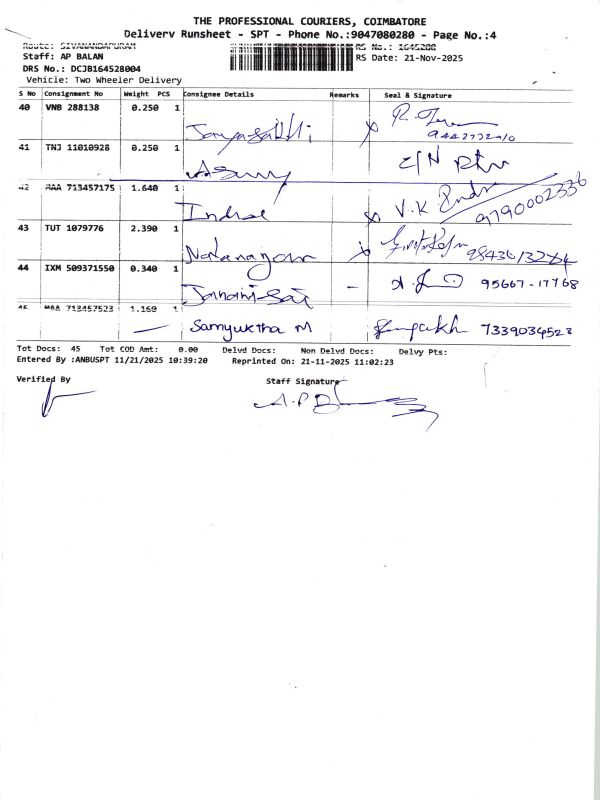 THE PROFESSIONAL COURIERS, COIMBATORE
Delivery Runsheet - SPT - Phone No.:9047080280 - Page No.:4
Route: SIVANANDAPURAM
RS No.: 1645288
Staff: AP BALAN
RS Date: 21-Nov-2025
DRS No.: DCJB164528004
Vehicle: Two Wheeler Delivery
S No Consignment No Weight PCS Consignee Details Remarks Seal & Signature
40 VNB 288138 0.250 1
41 TNJ 11010928 0.250 1
42 MAA 713457175 1.640 1 Indra V.K 9790002336
43 TUT 1079776 2.390 1
44 IXM 509371550 0.340 1 Janani Sai - 95667-17768
45 MAA 713457523 1.160 1
Samyuktha M 7339034523
Tot Docs: 45 Tot COD Amt: 0.00 Delvd Docs: Non Delvd Docs: Delvy Pts:
Entered By :ANBUSPT 11/21/2025 10:39:20 Reprinted On: 21-11-2025 11:02:23
Verified By Staff Signature
A.P